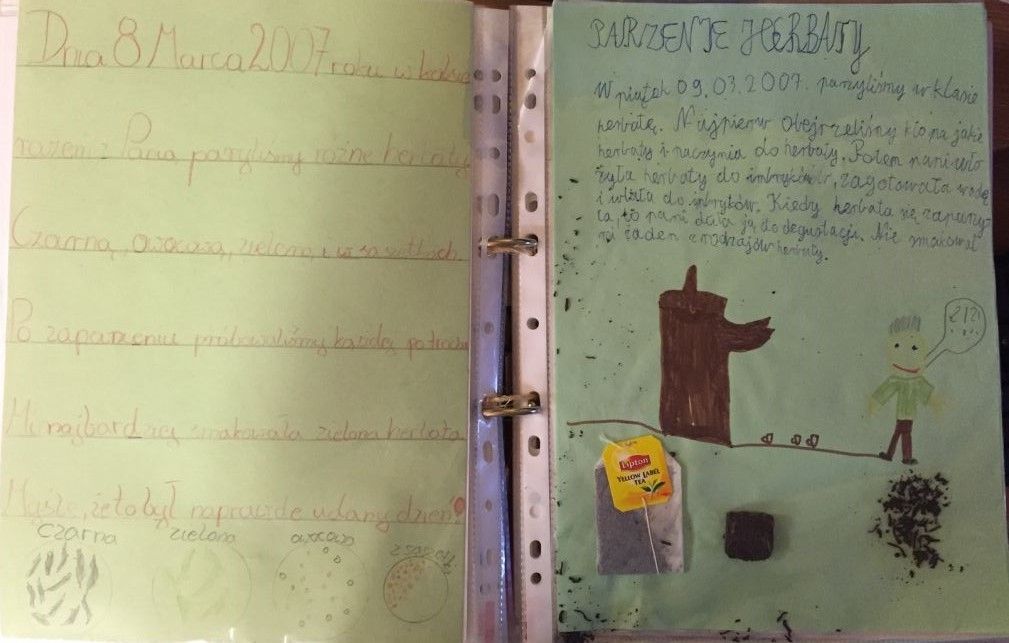 Dnia 8 Marca 2007 roku w klasie
razem z Panią parzyliśmy różne herbaty
Czarną, owocową, zieloną, i w saszetkach
Po zaparzeniu próbowaliśmy każdej po trochu
Mi najbardziej smakowała zielona herbata
Myślę, że to był naprawdę udany dzień!
czarna zielona owocowa
PARZENIE HERBATY
W piątek 09.03.2007. parzyliśmy w klasie
herbatę. Najpierw obejrzeliśmy kto ma jakie
herbaty i naczynia do herbaty. Potem pani wło
żyła herbaty do imbryków, zagotowała wodę
i wlała do imbryków. Kiedy herbata się zaparzy-
ła, to pani dała ją do degustacji. Nie smakował
mi żaden z rodzajów herbaty.
Lipton
YELLOW LABEL
TEA